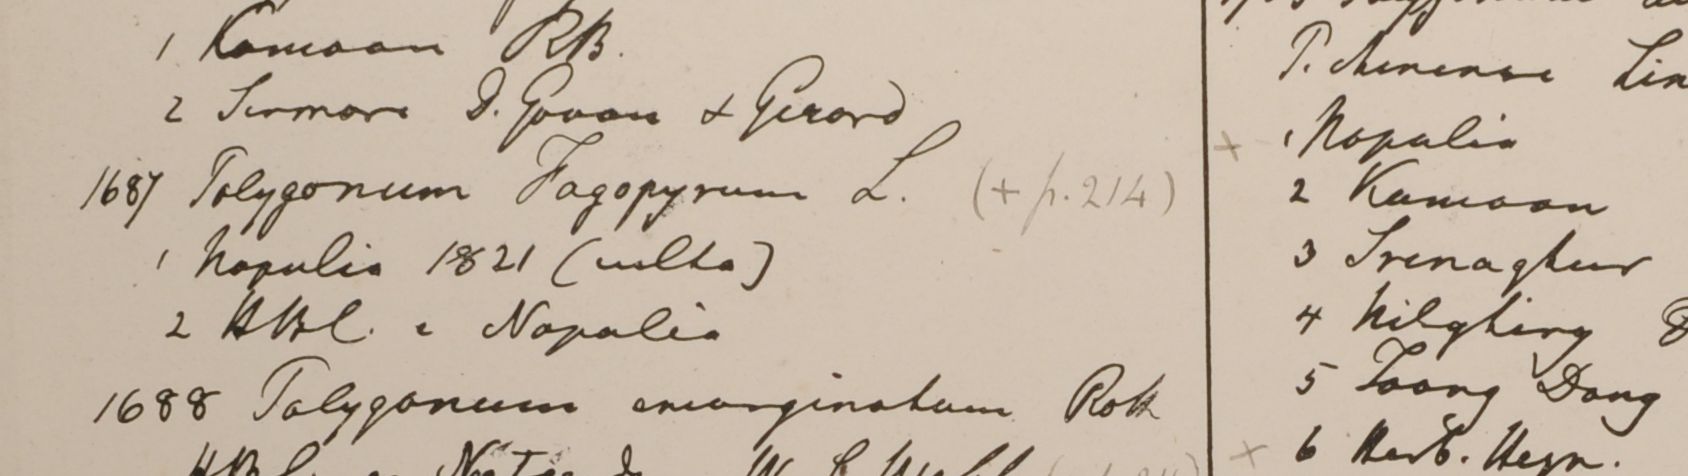 1 Kamaon RB.
2 Sirmore D. Govan & Gerard
1687 Polygonum Fagopyrum L. (+ p. 214)
1 Napalia 1821 (culta)
2 HBC. e Napalia
1688 Polygonum emarginatum Roth
P. chinense Lin
+ 1 Napalia
2 Kamaon
3 Srenaghur
4 Nilghiry
5 Toong Dong
+ 6 Herb. Heyn.